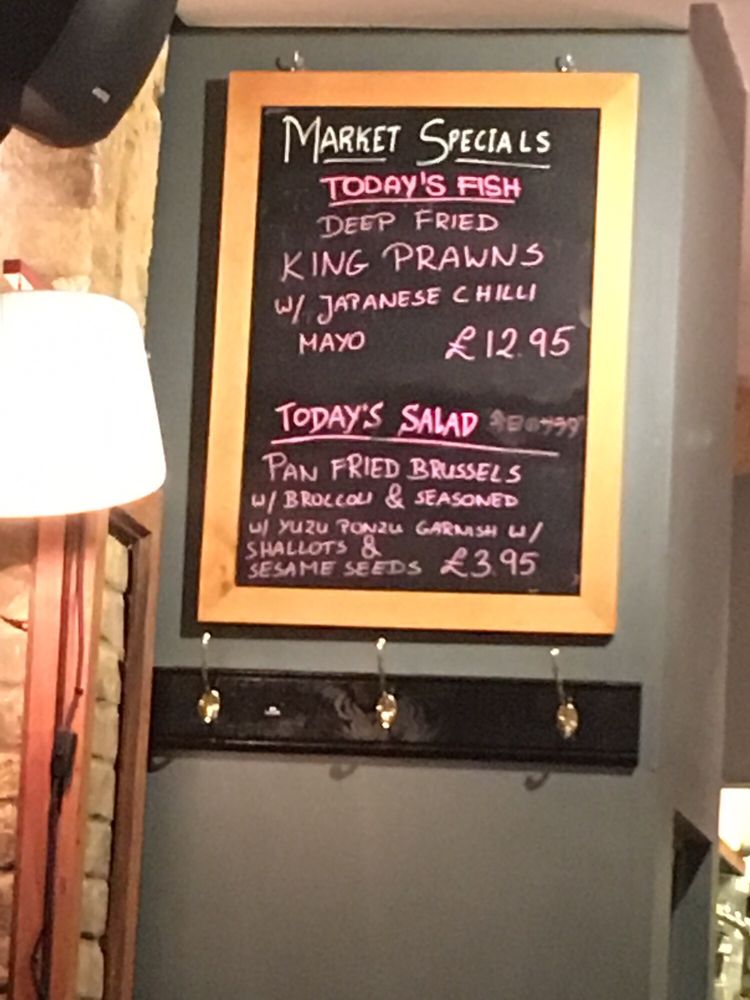 MARKET SPECIALS
TODAY'S FISH
DEEP FRIED
KING PRAWNS
W/ JAPANESE CHILLI
MAYO £12.95
TODAY'S SALAD 今日のサラダ
PAN FRIED BRUSSELS
W/ BROCCOLI & SEASONED
W/ YUZU PONZU GARNISH W/
SHALLOTS &
SESAME SEEDS £3.95